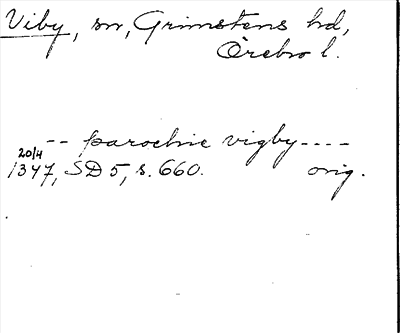 Viby, sn, Grimstens hd,
Örebro l.
-- parochie vigby ----
20/4
1347, SD 5, s. 660. orig.